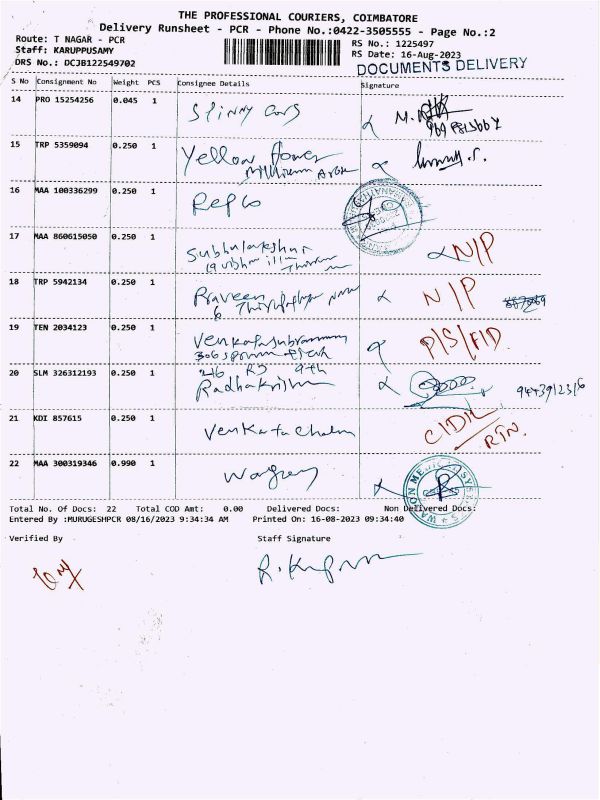 THE PROFESSIONAL COURIERS, COIMBATORE
Delivery Runsheet - PCR - Phone No.:0422-3505555 - Page No.:2
Route: T NAGAR - PCR
Staff: KARUPPUSAMY
DRS No.: DCJB122549702
RS No.: 1225497
RS Date: 16-Aug-2023
DOCUMENTS DELIVERY
S No Consignment No Weight PCS Consignee Details Signature
14 PRO 15254256 0.045 1 Spinny Cars
15 TRP 5359094 0.250 1 Yellow flower
16 MAA 100336299 0.250 1 Repco
17 MAA 860615050 0.250 1 N/P
18 TRP 5942134 0.250 1 Praveen N/P
6
19 TEN 2034123 0.250 1 P/S/FID.
20 SLM 326312193 0.250 1 Radhakrishn
21 KDI 857615 0.250 1 Venkatachalm C/D/L
RTN.
22 MAA 300319346 0.990 1
Total No. Of Docs: 22 Total COD Amt: 0.00 Delivered Docs: Non Delivered Docs:
Entered By :MURUGESHPCR 08/16/2023 9:34:34 AM Printed On: 16-08-2023 09:34:40
Verified By Staff Signature